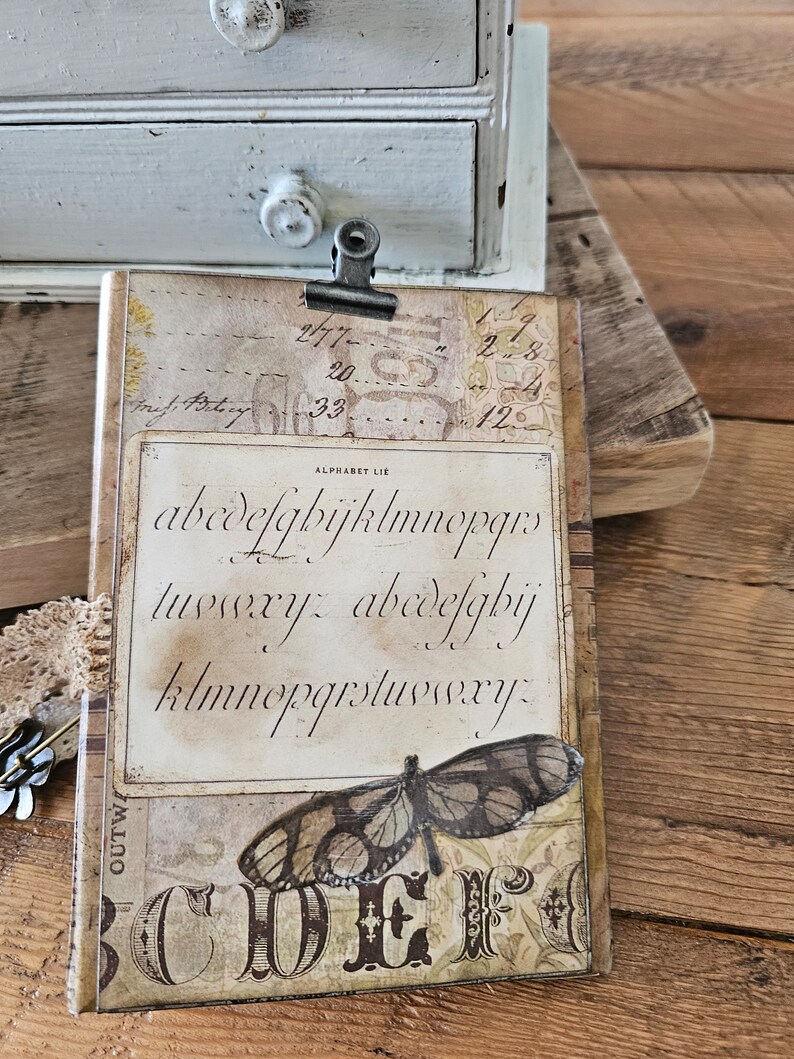 1 9
277 " 2 " 8
20 " 4
Miss Betsey 33 " 12
ALPHABET LIÉ
abcdefghijklmnopqrs
tuvwxyz abcdefghij
klmnopqrstuvwxyz
OUTWA
BCDEFG